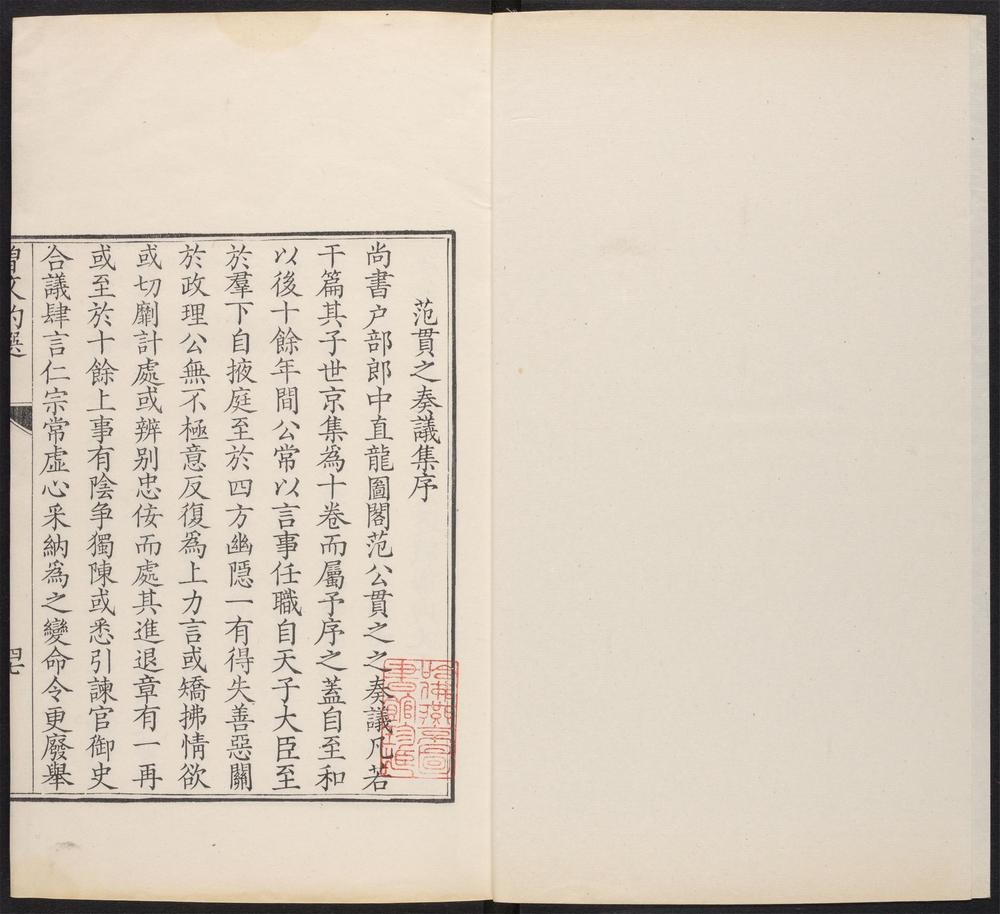 范貫之奏議集序
尚書户部郎中直龍圖閣范公貫之之奏議凡若
干篇其子世京集爲十卷而屬予序之蓋自至和
以後十餘年間公常以言事任職自天子大臣至
於羣下自掖庭至於四方幽隱一有得失善惡關
於政理公無不極意反復爲上力言或矯拂情欲
或切劘計處或辨别忠佞而處其進退章有一再
或至於十餘上事有陰争獨陳或悉引諫官御史
合議肆言仁宗常虚心采納爲之變命令更廢舉
哈佛燕京圖書館珍藏